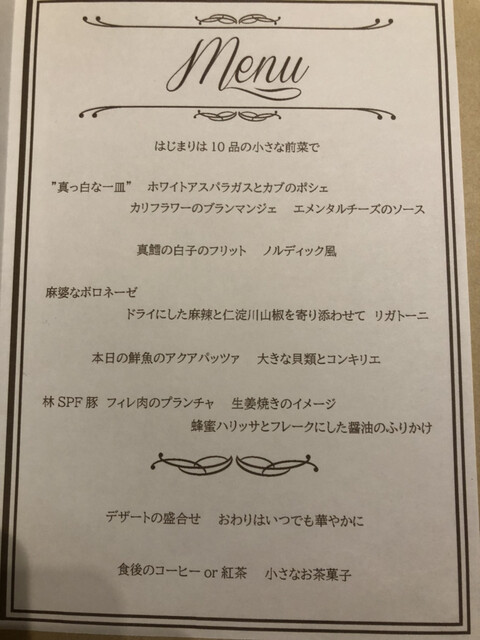 Menu
はじまりは 10 品の小さな前菜で
"真っ白な一皿" ホワイトアスパラガスとカブのポシェ
カリフラワーのブランマンジェ エメンタルチーズのソース
真鱈の白子のフリット ノルディック風
麻婆なボロネーゼ
ドライにした麻辣と仁淀川山椒を寄り添わせて リガトーニ
本日の鮮魚のアクアパッツァ 大きな貝類とコンキリエ
林 SPF 豚 フィレ肉のプランチャ 生姜焼きのイメージ
蜂蜜ハリッサとフレークにした醤油のふりかけ
デザートの盛合せ おわりはいつでも華やかに
食後のコーヒー or 紅茶 小さなお茶菓子